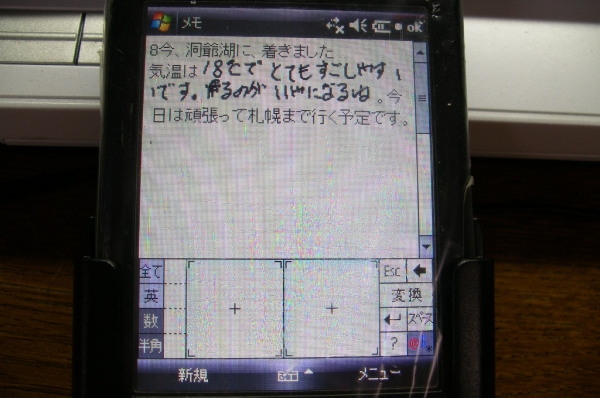 メモ
ok
8今、洞爺湖に、着きました
気温は18そで とてもすごしやすい
いです。帰るのが いやになるね。今
日は頑張って札幌まで行く予定です。
全て
英
数
半角
Esc
変換
スペース
?
新規
メニュー